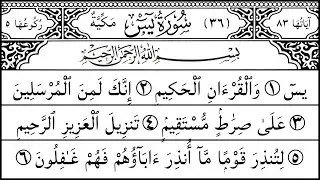 آيَاتُهَا ٨٣ (٣٦) سُورَةُ يسٓ مَكِّيَّةٌ رُكُوعُهَا ٥
بِسْمِ اللهِ الرَّحْمٰنِ الرَّحِيْمِ
يسٓ ١ وَٱلْقُرْءَانِ ٱلْحَكِيمِ ٢ إِنَّكَ لَمِنَ ٱلْمُرْسَلِينَ
٣ عَلَىٰ صِرَٰطٍ مُّسْتَقِيمٍ ٤ تَنزِيلَ ٱلْعَزِيزِ ٱلرَّحِيمِ
٥ لِتُنذِرَ قَوْمًا مَّآ أُنذِرَ ءَابَآؤُهُمْ فَهُمْ غَٰفِلُونَ ٦